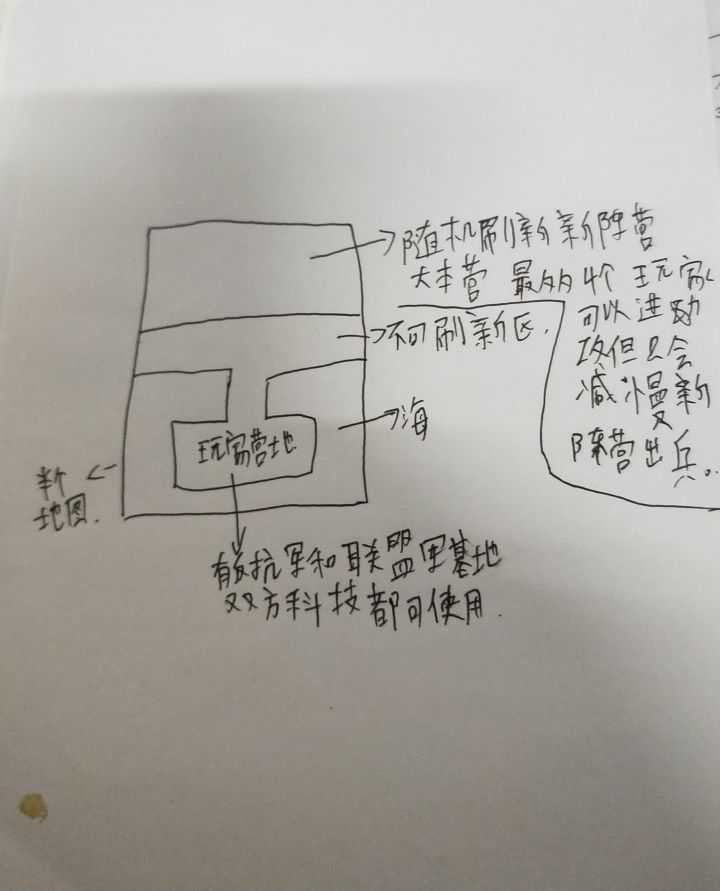 随机刷新新阵营
大本营 最多4个 玩家
可以进攻
攻但只会
减慢新
阵营出兵。
不可刷新区。
海
玩家营地
半个
地图.
有反抗军和联盟军基地
双方科技都可使用.